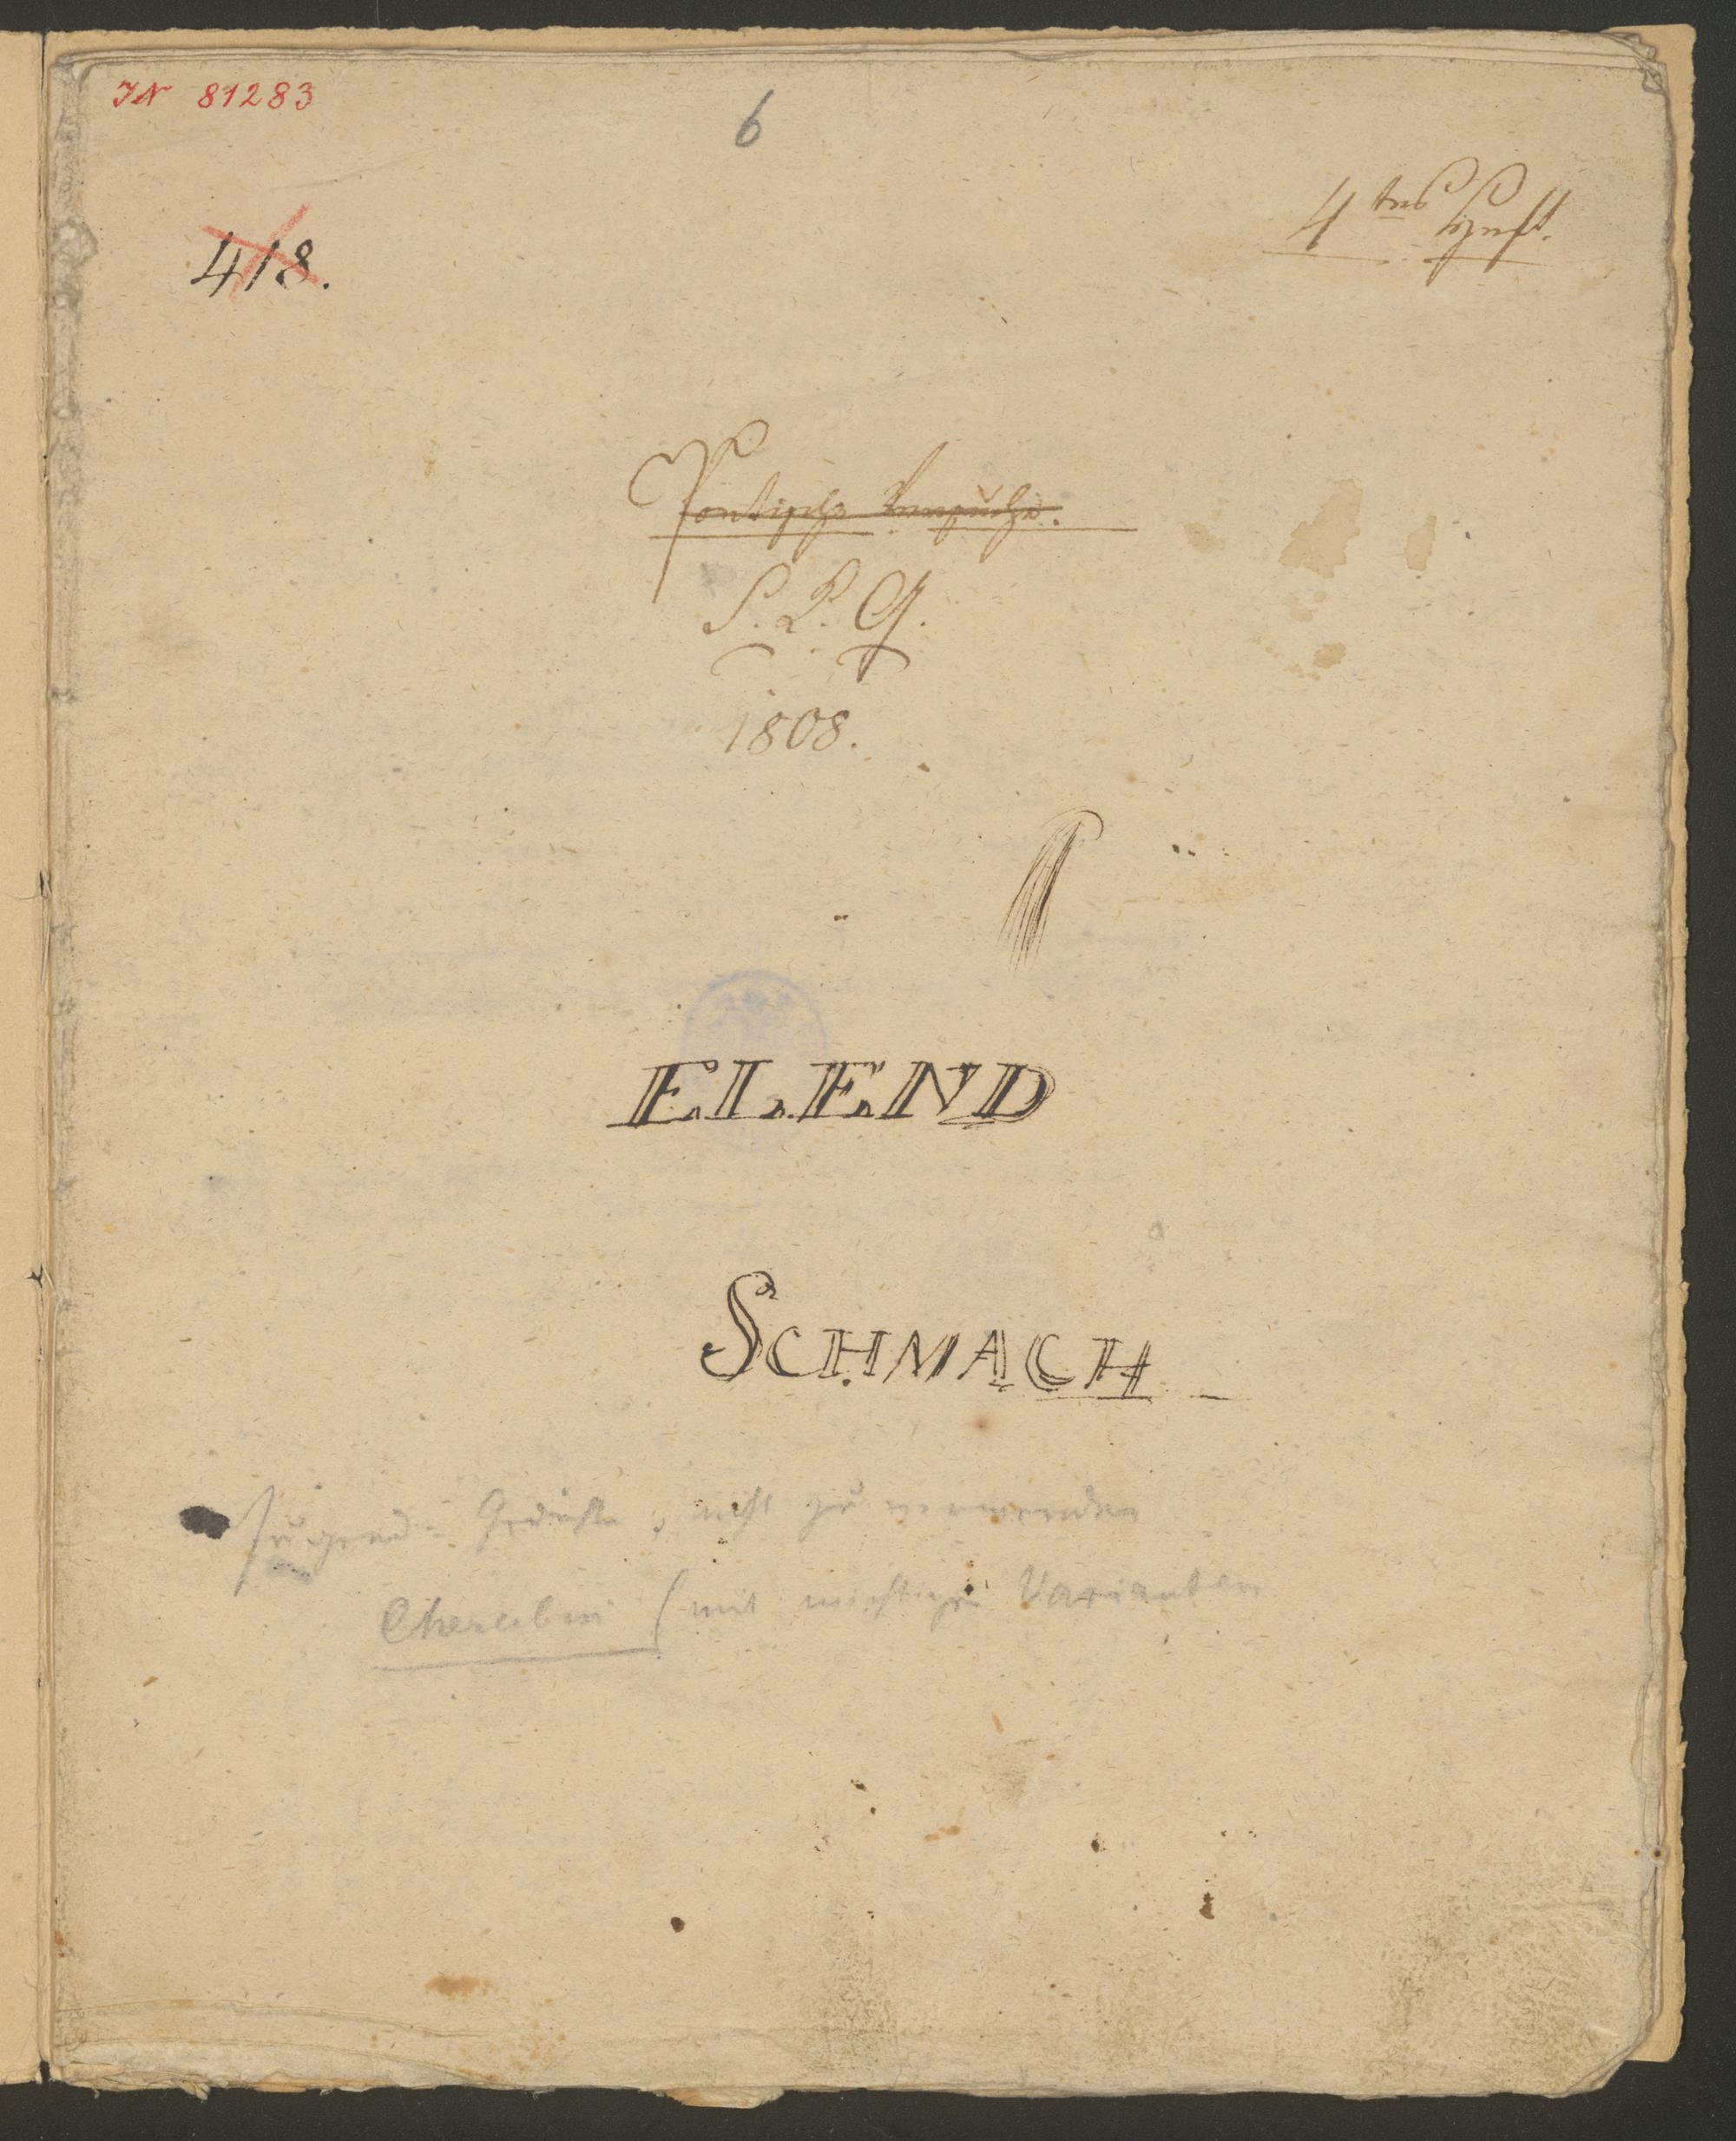 IN 81283
6
4tes Heft.
418.
Poetische Versuche.
S. L. G.
1808.
ELEND
SCHMACH
Jugend-Gedichte, nicht zu verwenden
Cherubin (mit wichtigen Varianten